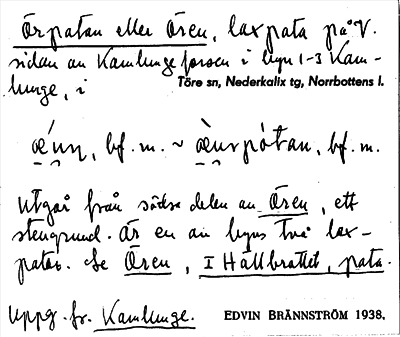 Örpatan eller Ören, laxpata på V.
sidan av Kamlungeforsen i byn 1-3 Kam-
lunge, i
Töre sn, Nederkalix tg, Norrbottens l.
bf. m. ~ bf. m.
Utgår från södra delen av Ören, ett
stengrund. Är en av byns två lax-
pator. Se Ören, I Hällbrattet, pata.
Uppg. fr. Kamlunge.
EDVIN BRÄNNSTRÖM 1938.